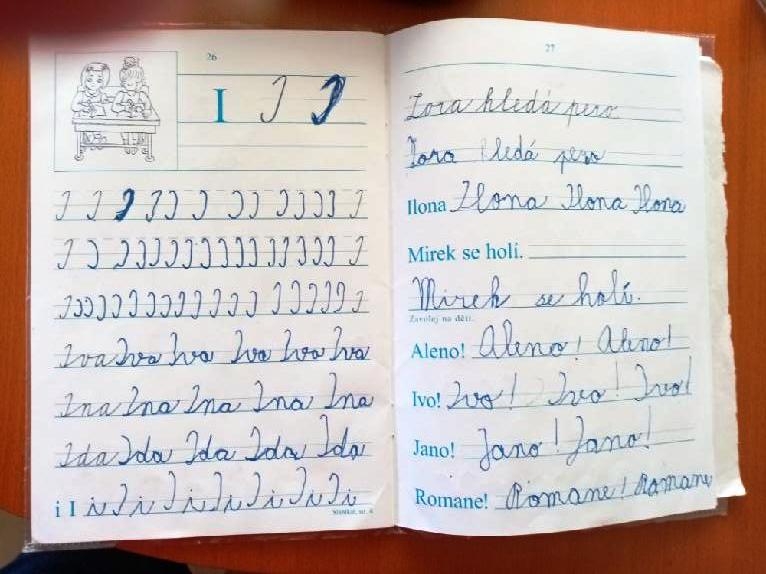 26
I I I
I I I I I I I I I I I I I
I I I I I I I I I I I I I I I I
I I I I I I I I I I I I I I I I
Iva Iva Iva Iva Iva Iva
Ina Ina Ina Ina Ina
Ida Ida Ida Ida Ida
i I i I i I i I i I i I i I i
27
Iora hledá pero
Iora hledá pero
Ilona Ilona Ilona Ilona
Mirek se holí.
Mirek se holí.
Zavolej na děti.
Aleno! Aleno! Aleno!
Ivo! Ivo! Ivo! Ivo!
Jano! Jano! Jano!
Romane! Romane! Romane